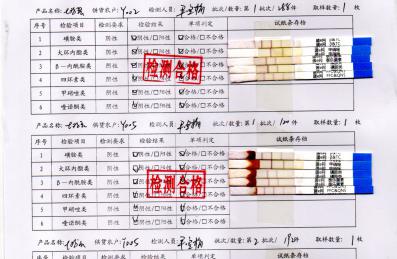 产品名称: 供货农户: Y002 检测人员: 批次/数量: 第 1 批次/ 件 取样数量: 1 枚
序号 检验项目 检测要求 检验结果 单项判定 试纸条存档
1 磺胺类 阴性 ☑阴性/□阳性 ☑合格/□不合格
2 大环内酯类 阴性 ☑阴性/□阳性 ☑合格/□不合格
3 β-内酰胺类 阴性 ☑阴性/□阳性 ☑合格/□不合格
4 四环素类 阴性 ☑阴性/□阳性 ☑合格/□不合格
5 甲硝唑类 阴性 ☑阴性/□阳性 ☑合格/□不合格
6 喹诺酮类 阴性 ☑阴性/□阳性 ☑合格/□不合格
检测合格
产品名称: 供货农户: Y005 检测人员: 批次/数量: 第 1 批次/ 100 件 取样数量: 1 枚
序号 检验项目 检测要求 检验结果 单项判定 试纸条存档
1 磺胺类 阴性 ☑阴性/□阳性 ☑合格/□不合格
2 大环内酯类 阴性 ☑阴性/□阳性 ☑合格/□不合格
3 β-内酰胺类 阴性 ☑阴性/□阳性 ☑合格/□不合格
4 四环素类 阴性 ☑阴性/□阳性 ☑合格/□不合格
5 甲硝唑类 阴性 ☑阴性/□阳性 ☑合格/□不合格
6 喹诺酮类 阴性 ☑阴性/□阳性 ☑合格/□不合格
检测合格
产品名称: 供货农户: Y005 检测人员: 批次/数量: 第 2 批次/ 件 取样数量: 1 枚